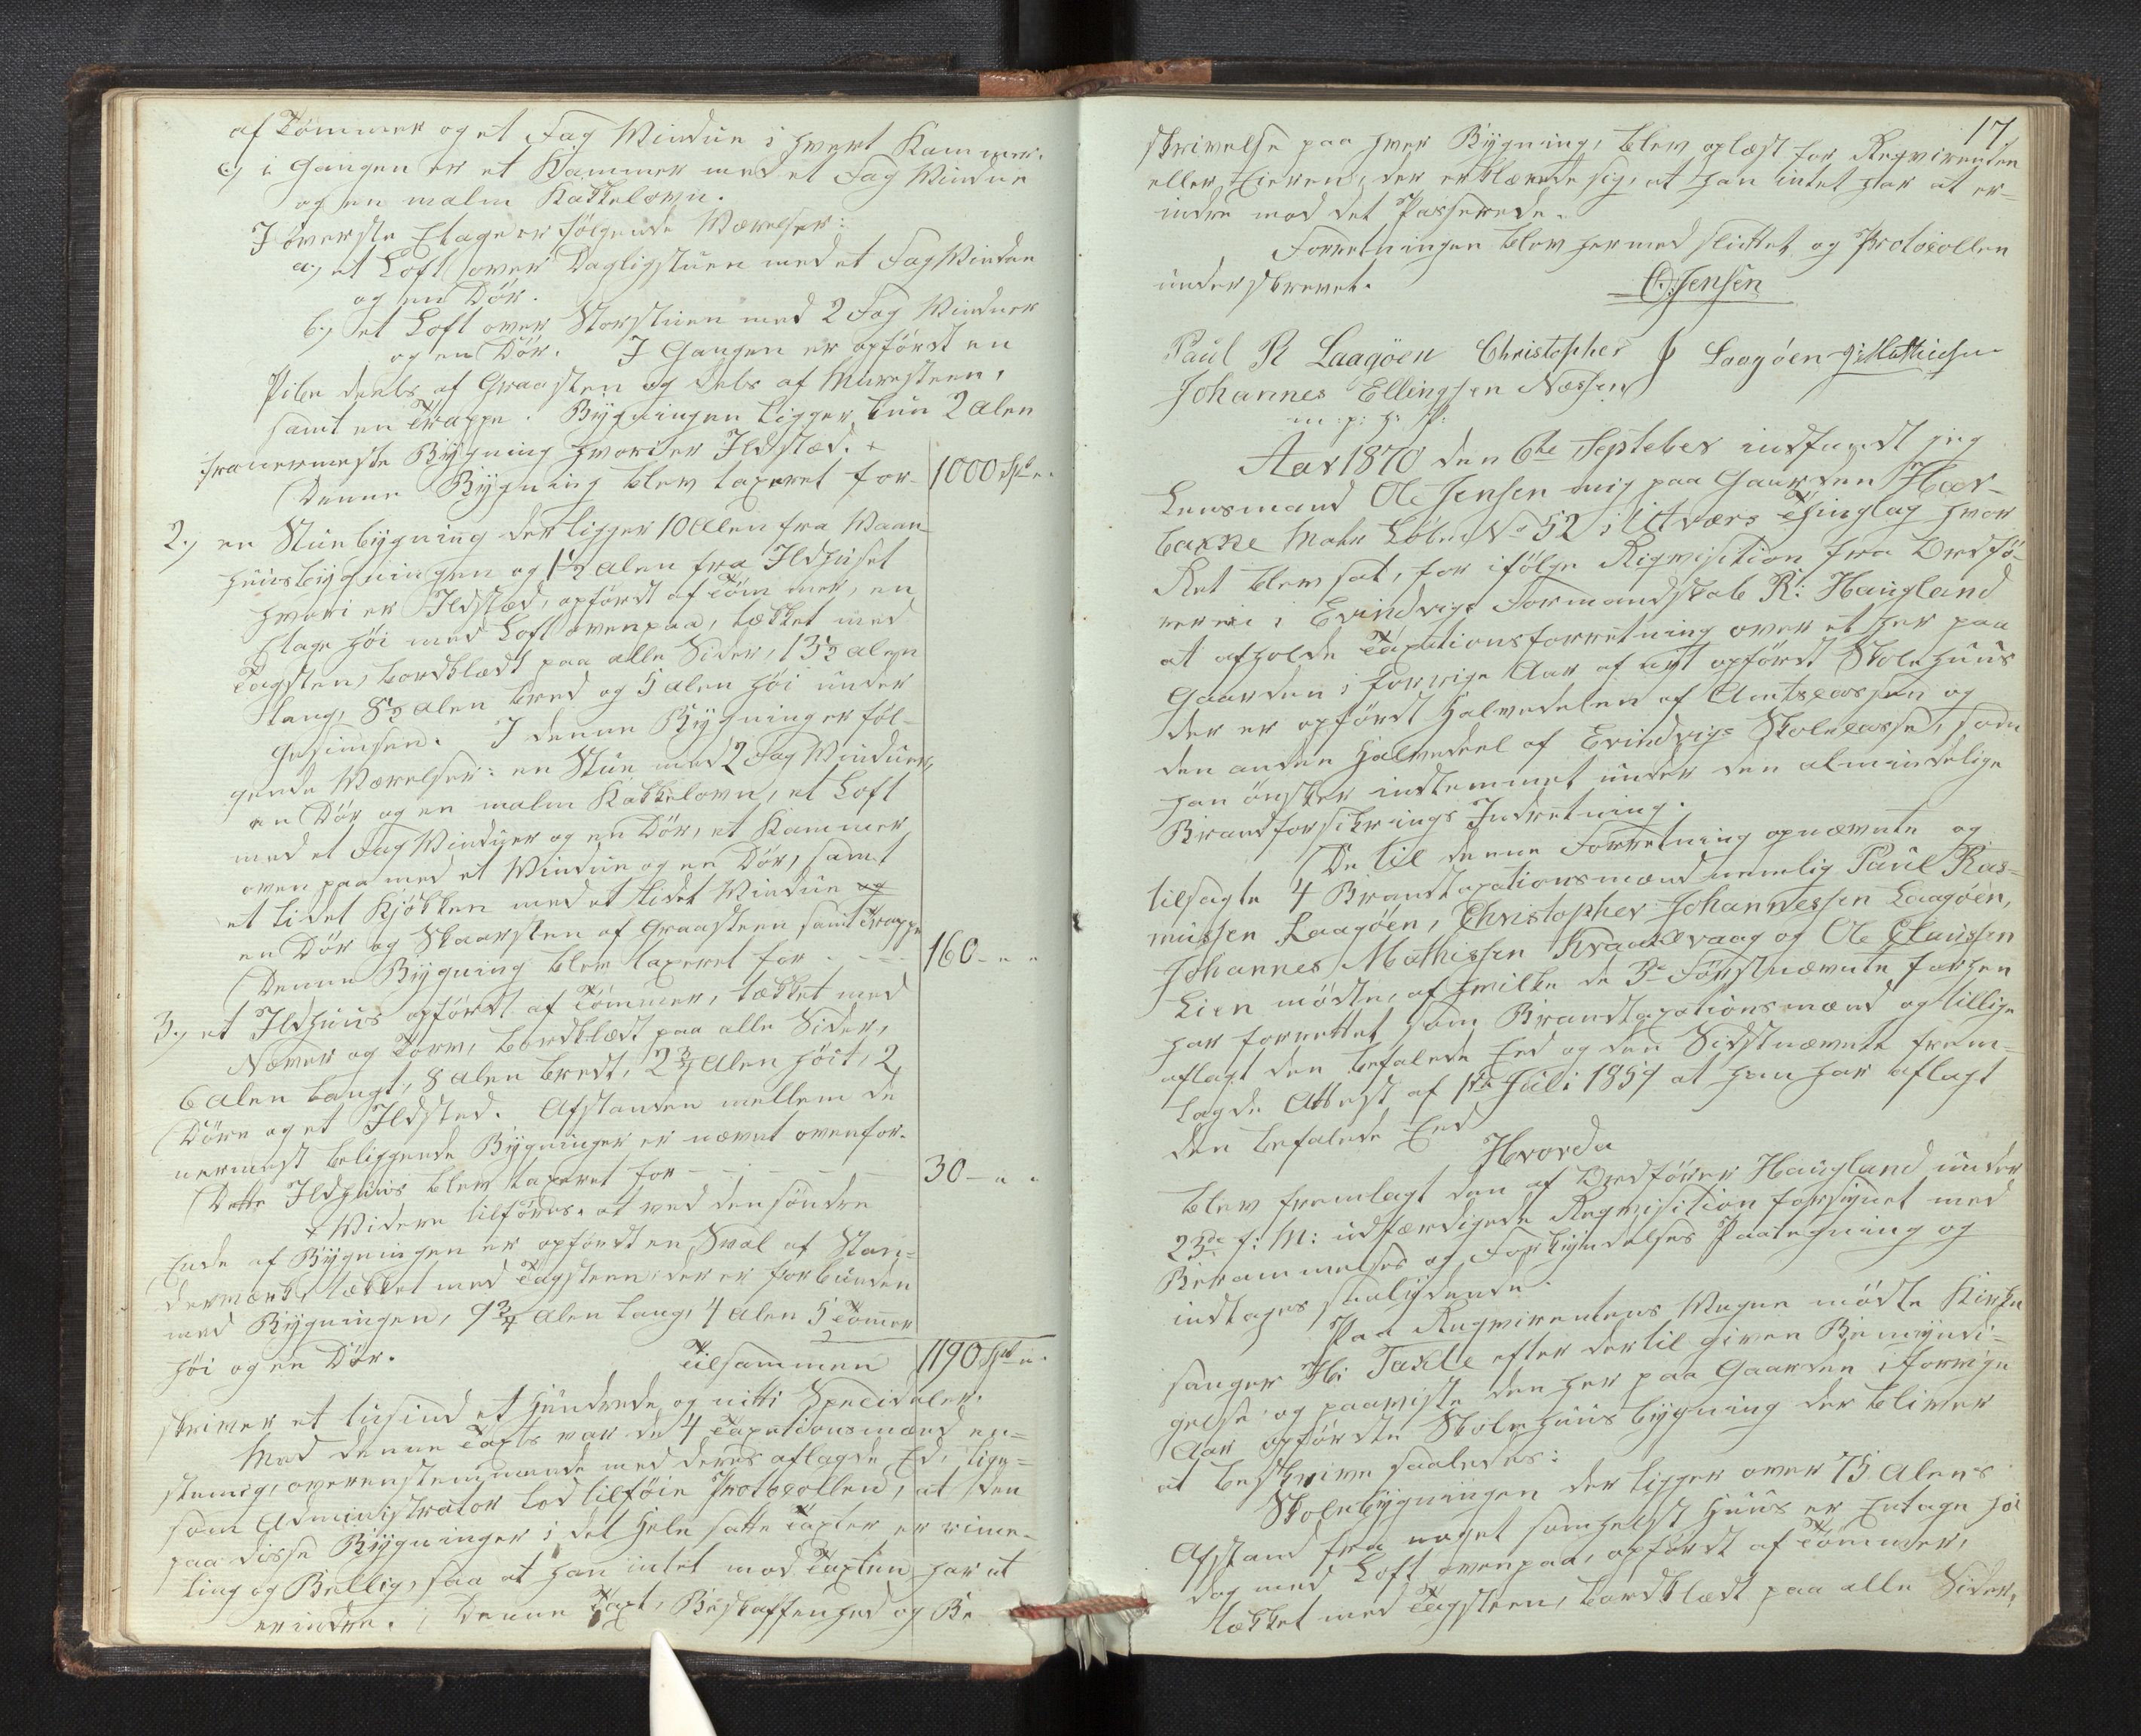 af Tømmer og et Fag Vindue i hvert Kammer.
c, i Gangen er et Kammer med et Fag Vindue
og en malm Kakkelovn.
I øverste Etage er følgende Værelser:
a, et Loft over Dagligstuen med et Fag Vindue
og en Dør.
b, et Loft over Storstuen med 2 Fag Vinduer
og en Dør. I Gangen er opført en
Pibe deels af Graasten og dels af Mursteen,
samt en Trappe. Bygningen ligger kun 2 Alen
fra nermeste Bygning hvori er Ildsted. +
Denne Bygning blev taxeret for - 1000 Spd "
2, en Stuebygning der ligger 10 Alen fra Vaan-
huusbygningen og 1½ Alen fra Ildhuset
hvori er Ildsted, opført af Tømmer, en
Etage høi med Loft ovenpaa, tækket med
Tagsten, bordklædt paa alle Sider, 13½ Alen
lang, 8½ Alen bred og 5 Alen høi under
Gesimsen. I denne Bygning er føl-
gende Værelser: en Stue med 2 Fag Vinduer,
en Dør og en malm Kakkelovn, et Loft
med et Fag Vinduer og en Dør, et Kammer
oven paa med et Vindue og en Dør, samt
et lidet Kjøkken med et lidet Vindue og
en Dør og Skaarsten af Graasteen samt Trappe
Denne Bygning blev taxeret for - - - 160 - " "
3, et Ildhuus opført af Tømmer, tækket med
Næver og Torv, bordklædt paa alle Sider,
6 Alen langt, 8 Alen bredt, 2¾ Alen høit, 2
Døre og et Ildsted. Afstanden mellem de
nermest beliggende Bygninger er nævnt ovenfor.
Dette Ildhuus blev taxeret for - - - - - 30 - " "
+ Videre tilføres: at ved den søndre
Ende af Bygningen er opført en Sval af Stan-
derværk, tækket med Tagsteen, der er forbunden
med Bygningen, 9¾ Alen lang, 4 Alen 5 Tommer
høi og en Dør.
Tilsammen 1190 Spd "
skriver et tusind et Hundrede og nitti Specidaler.
Med denne Taxt var de 4 Taxationsmænd en-
stemig, overenstemmende med deres aflagde Ed, lige-
som Administrator lod tilføie Protocollen, at den
paa disse Bygninger i det Hele satte Taxter er rime-
ling og Bellig, saa at han intet mod Taxten har at
erindre. Denne Taxt, Beskaffenhed og Be
17
skrivelse paa hver Bygning, blev oplæst for Reqvirenten
eller Eieren, der erklærede sig, at han intet har at er-
indre mod det Passerede.
Forretningen blev hermed sluttet og Protocollen
underskrevet.
O. Jensen
Paul R Laagøen Christopher J Laagöen J. Mathiesen
Johannes Ellingsen Næssen
m: p: h: P:
Aar 1870 den 6te Septeber indfandt jeg
Lensmand Ole Jensen mig paa Gaarden Hær-
bakke Matr Løb: No 52 i Utvær Thinglag hvor
Ret blev sat, for ifølge Reqvisition fra Ordfø-
reren i Evindvigs Formandskab R: Haugland
at afholde Taxationsforretning over et her paa
Gaarden i forrige Aar af nyt opført Skolehuus
der er opført Halvedelen af Amtscassen og
den anden Halvedeel af Evindvigs Skolecasse, som
han ønsker indlemmet under den almindelige
Brandforsikrings Indretning.
De til denne Forretning opnævnte og
tilsagte 4 Brandtaxationsmænd nemlig Paul Ras-
mussen Laagøen, Christopher Johannessen Laagøen,
Johannes Mathissen Kraakevaag og Ole Clausen
Lien mødte, af hvilke de 3de Førstnævnte forhen
har forrettet som Brandtaxationsmænd og tillige
aflagt den befalede Eed og den Sidstnævnte frem-
lagde Attest af 1ste Juli 1854 at han har aflagt
den befalede Eed
Hvorda
blev fremlagt den af Ordfører Haugland under
23de f: M: udfærdigede Reqvisition forsynet med
Berammelses og Forkyndelses Paategning og
indtages saalydende.
Paa Reqvirentens Vegne mødte Kirke
sanger H: Takle efter dertil given Bemyndi-
gelse og paaviste den her paa Gaarden i forrige
Aar opførte Skolehuusbygning der bliver
at beskrive saaledes:
Skolebygningen der ligger over 75 Alens
Afstand fra noget somhelst Huus er Entage høi
dog med Loft ovenpaa, opført af Tømmer,
tækket med Tagsteen, bordklædt paa alle Sider,